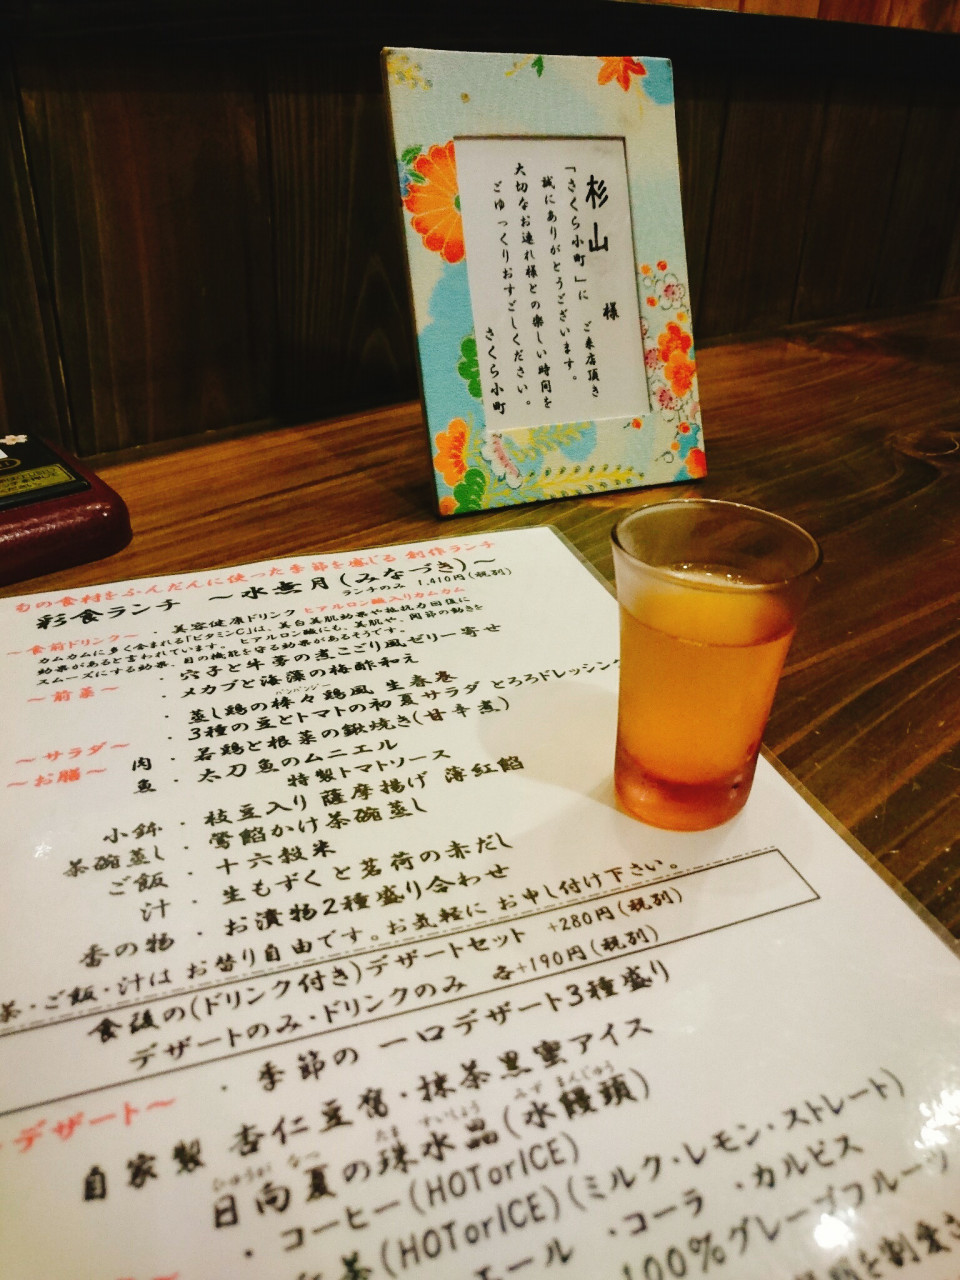 杉山 様
「さくら小町」に ご来店頂き
誠にありがとうございます。
大切なお連れ様との楽しい時間を
ごゆっくりおすごしください。
さくら小町
もの食材をふんだんに使った季節を感じる 創作ランチ
彩食ランチ ～水無月(みなづき)～
ランチのみ 1,410円(税別)
～食前ドリンク～ ・美容健康ドリンク ヒアルロン酸入りカムカム
カムカムに多く含まれる「ビタミンC」は、美白美肌効果や抵抗力回復に
効果があると言われています。ヒアルロン酸にも、美肌や、関節の動きを
スムーズにする効果、目の機能を守る効果があるそうです。
～前菜～ ・穴子と牛蒡の煮こごり風ゼリー寄せ
・メカブと海藻の梅酢和え
・蒸し鶏の棒々鶏風 生春巻
バンバンジー
～サラダ～ ・3種の豆とトマトの初夏サラダ とろろドレッシング
～お膳～ 肉 ・若鶏と根菜の鍬焼き(甘辛煮)
魚 ・太刀魚のムニエル
特製トマトソース
小鉢 ・枝豆入り 薩摩揚げ 薄紅餡
茶碗蒸し ・鶯餡かけ茶碗蒸し
ご飯 ・十六穀米
汁 ・生もずくと茗荷の赤だし
香の物 ・お漬物2種盛り合わせ
茶・ご飯・汁は お替り自由です。お気軽に お申し付け下さい。
食後の(ドリンク付き)デザートセット +280円(税別)
デザートのみ・ドリンクのみ 各+190円(税別)
デザート～ ・季節の 一口デザート3種盛り
自家製 杏仁豆腐・抹茶黒蜜アイス
日向夏の珠水晶(水饅頭)
ひゅうが なつ たま すいしょう みず まんじゅう
・コーヒー(HOTorICE)
茶(HOTorICE)(ミルク・レモン・ストレート)
エール ・コーラ ・カルピス
100%グレープフルーツ